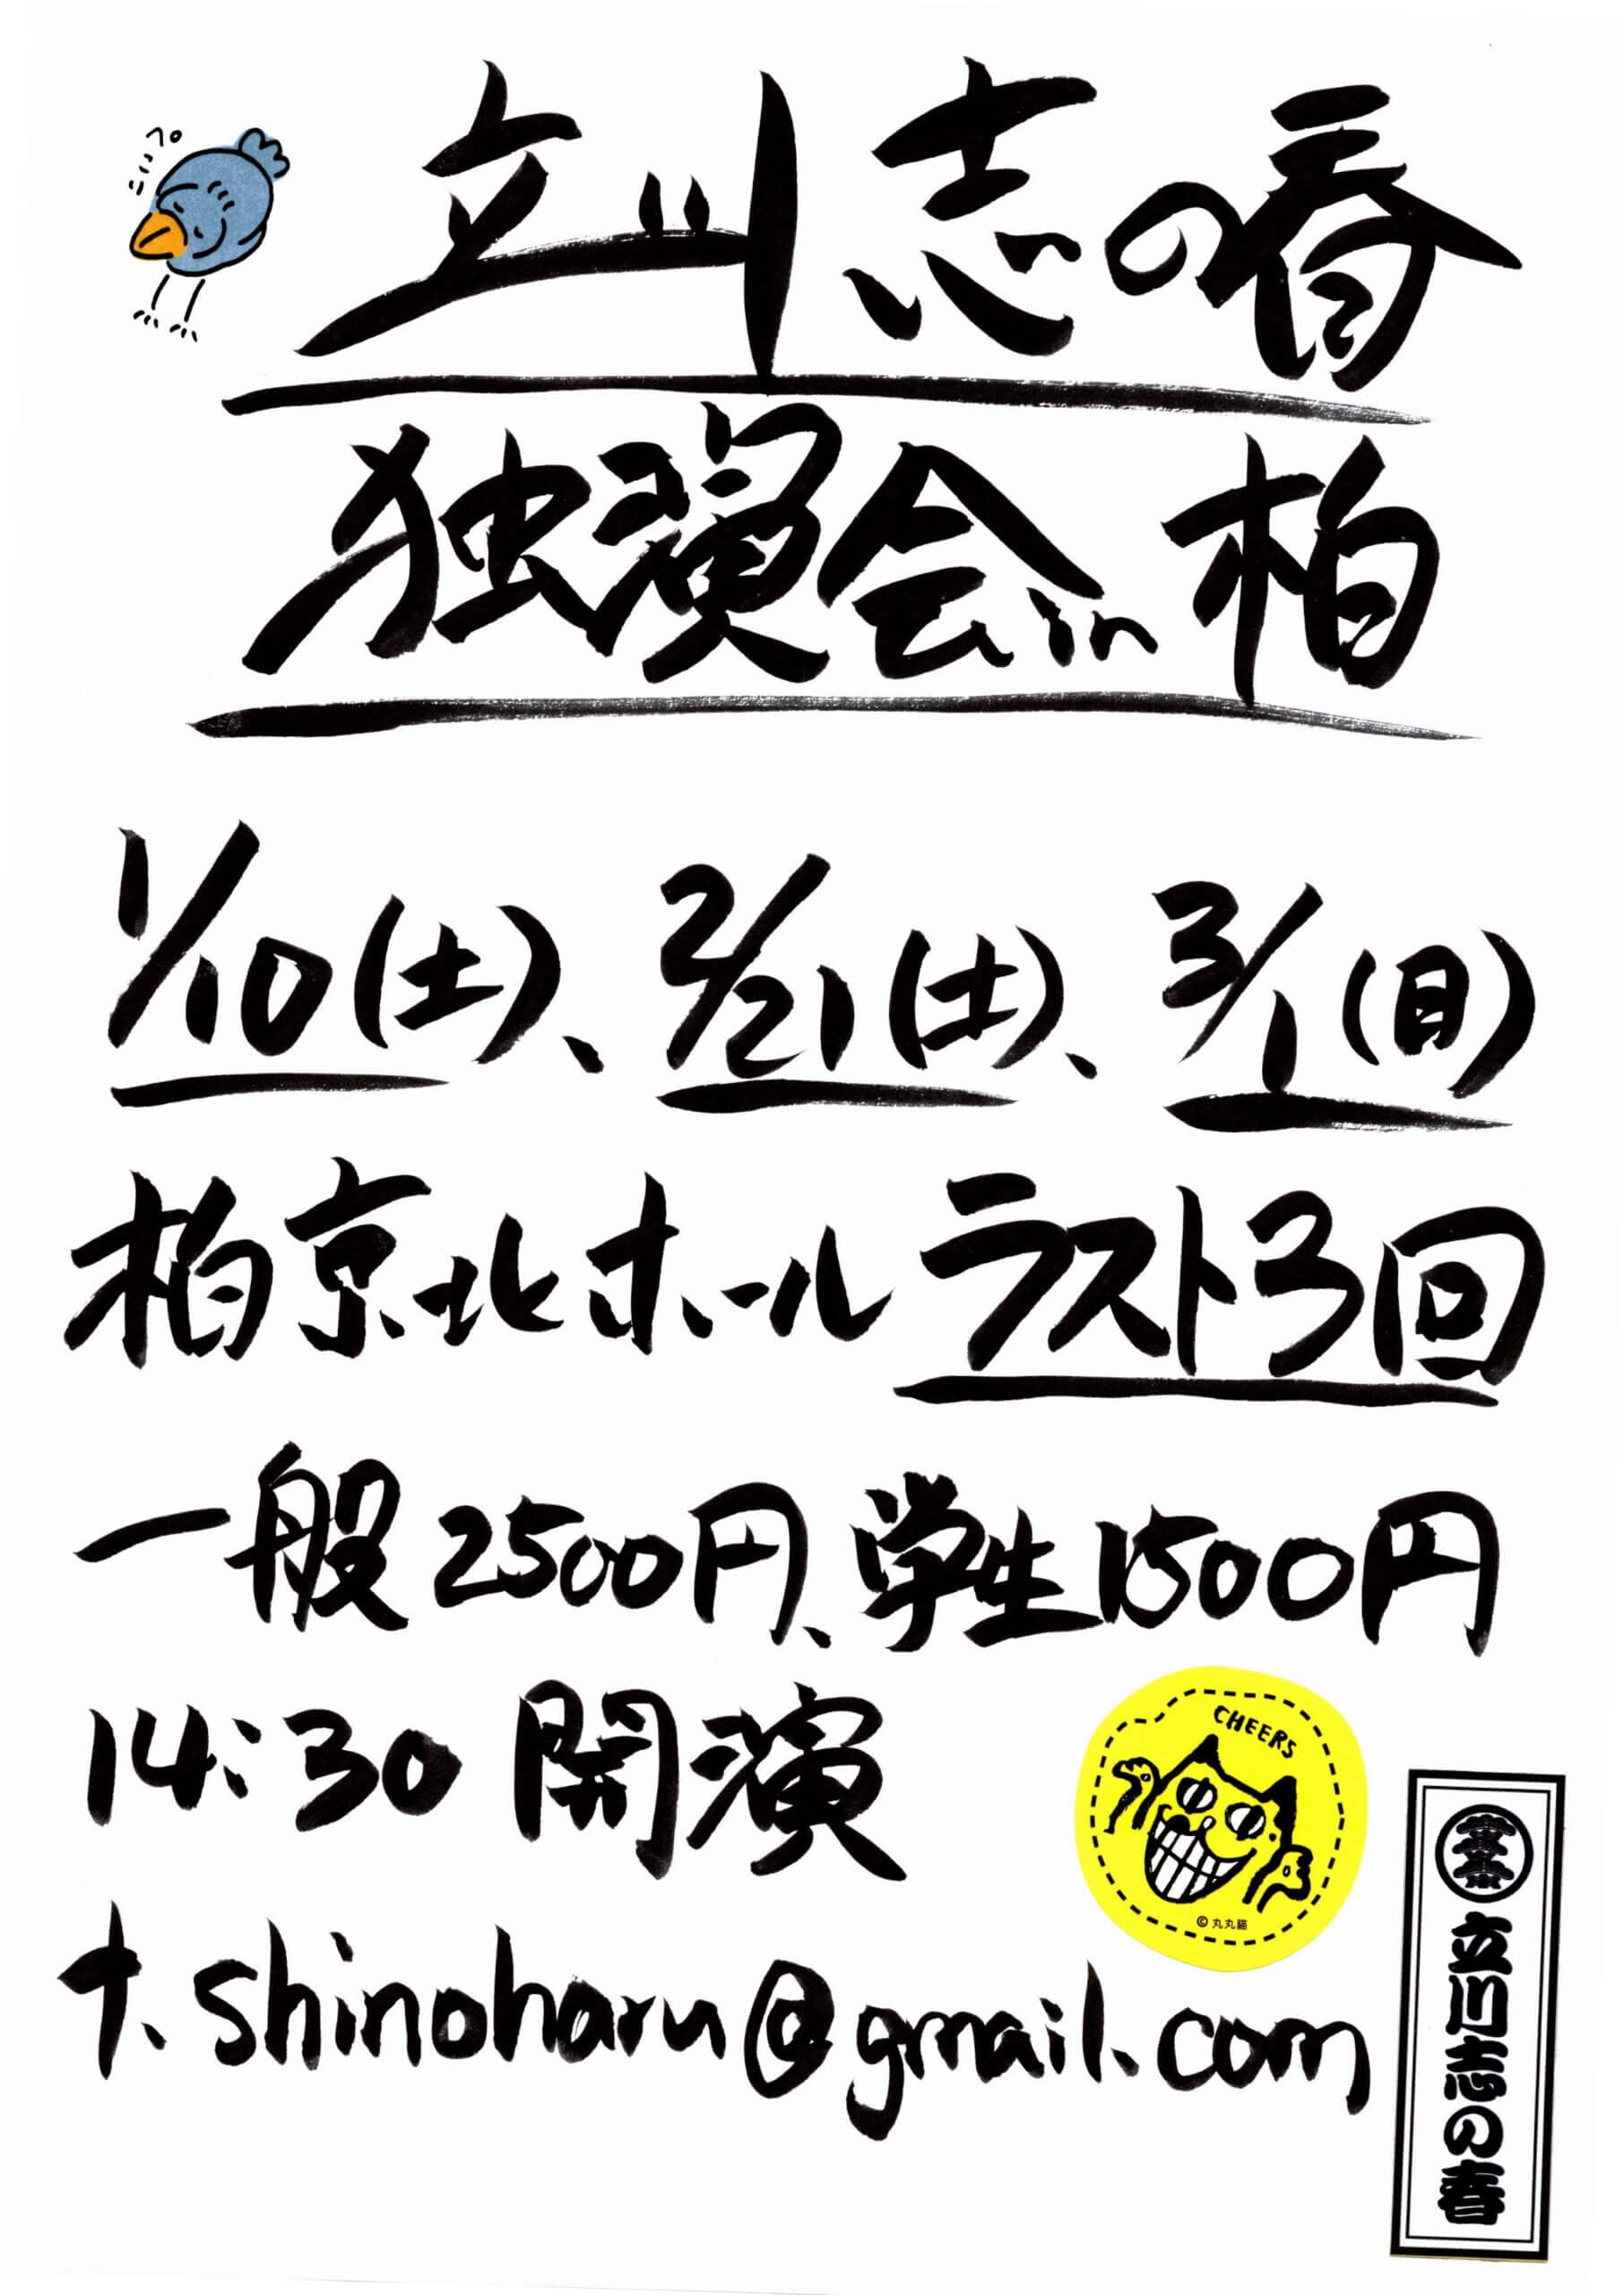 ペこっ
立川志の春
独演会in柏
1/10(土)、2/21(土)、3/1(日)
柏京北ホールラスト3回
一般2500円、学生1500円
14:30 開演
CHEERS
© 丸丸貓
t.shinoharu@gmail.com
立川志の春